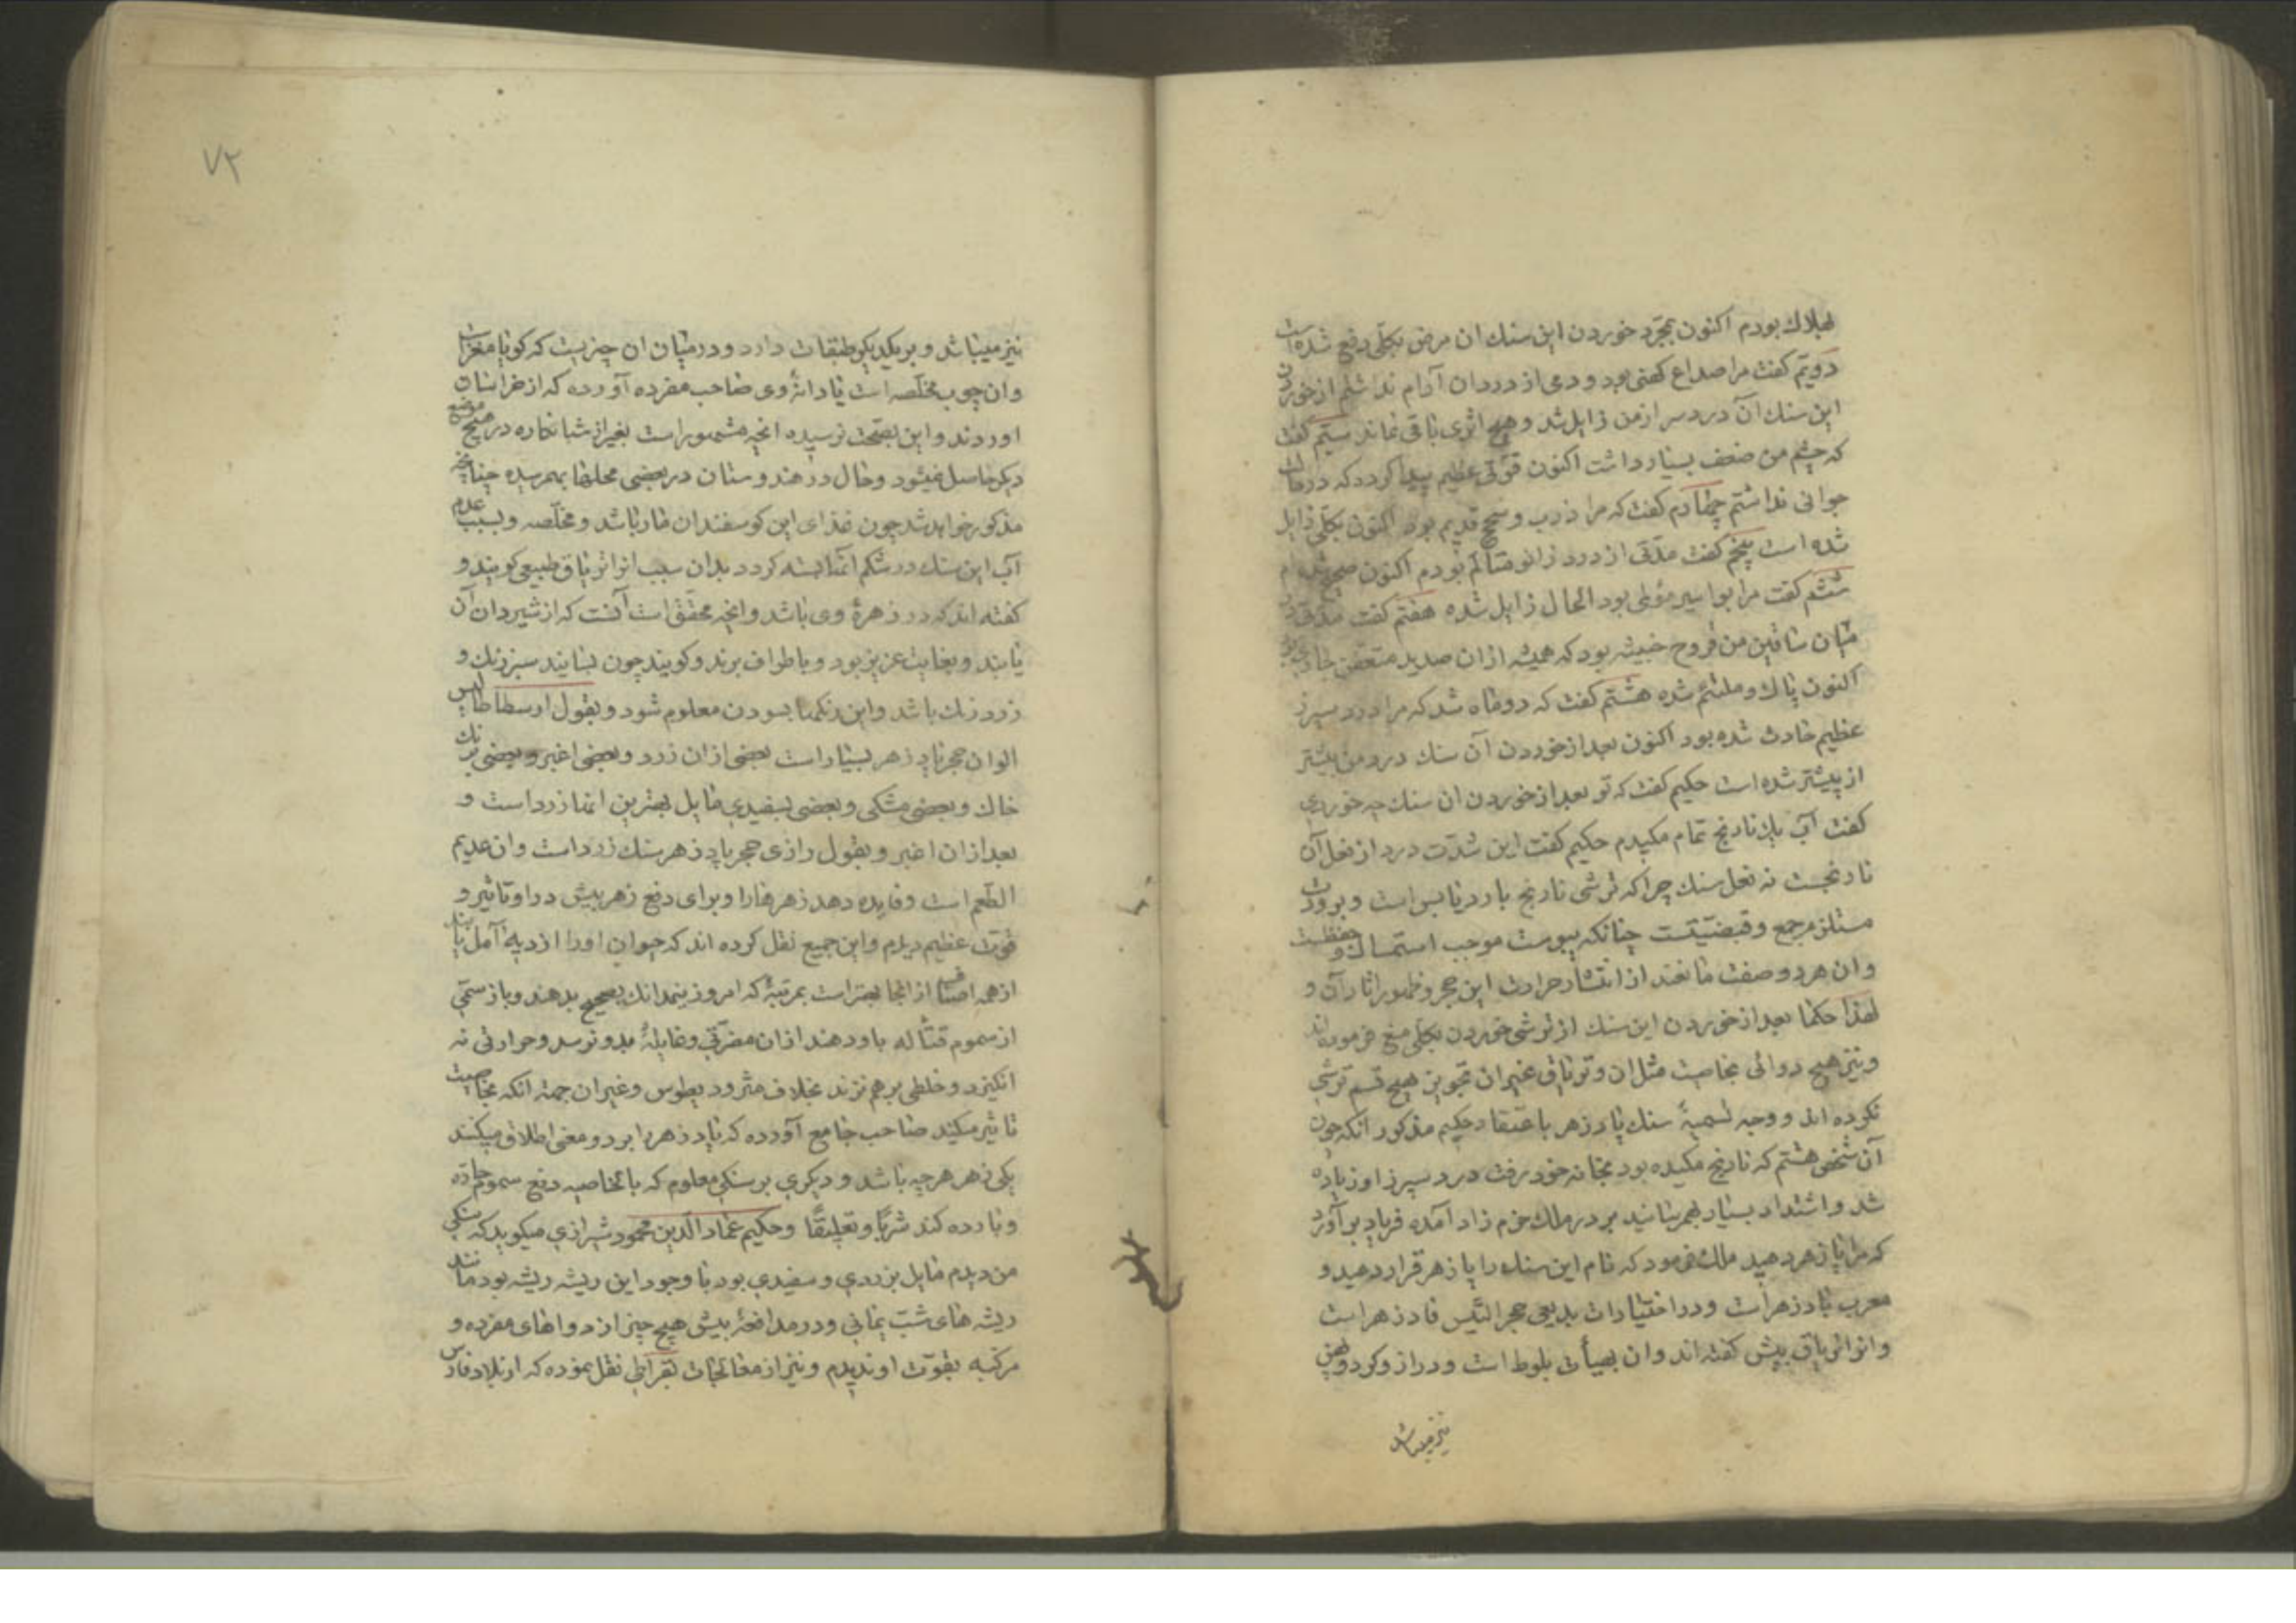 بهلاك بودم اكنون بمجرد خوردن اين سنك ان مرض بكلى دفع شده است
دويم كفت مرا صداع كهنى بود و دمى از درد ان آرام نداشتم از خوردن
اين سنك آن درد سر از من زايل شد و هيچ اثرى باقى نماند سيّم كفت
كه چشم من ضعف بسيار داشت اكنون قوّتى عظيم پيدا كرد كه در حالت
جوانى نداشتم چهارم كفت كه مرا ذرب و سحج قديم بود اكنون بكلّى زايل
شده است پنجم كفت مدّتى از درد زانو متالّم بودم اكنون صحيح شده‌ام
ششم كفت مرا بواسير مؤلمى بود الحال زايل شده هفتم كفت مدّتى
ميان ساقين من قروح خبيثه بود كه هميشه ازان صديد متعفن جارى بود
اكنون پاك و ملتئم شده هشتم كفت كه دو ماه شد كه مرا درد سپرز
عظيم حادث شده بود اكنون بعد از خوردن آن سنك درد من بيشتر
از پيشتر شده است حكيم كفت كه تو بعد از خوردن ان سنك چه خوردى
كفت آب يك نارنج تمام مكيدم حكيم كفت اين شدّت درد از فعل آن
نارنجست نه فعل سنك چرا كه ترشى نارنج بارد يابس است و برودت
مستلزم جمع و قبضيّتست چنانكه يبوست موجب استمساك و حفظست
و ان هر دو صفت مانعند از انتشار حرارت اين حجر و ظهور اثار آن و
لهذا حكما بعد از خوردن اين سنك از ترشى خوردن بكلّى منع فرموده‌اند
و نيز هيچ دوائى بخاصيت مثل ان و ترياق غير ان تجويز هيچ قسم ترشى
نكرده اند و وجه تسميهٔ سنك پادزهر باعتقاد حكيم مذكور انكه چون
آن شخص هشتم كه نارنج مكيده بود بخانه خود رفت درد سپرز او زياده
شد و اشتداد بسيار بهمرسانيد بر در ملك خرم زاد آمده فرياد بر آورد
كه مرا پازهر دهيد ملك فرمود كه نام اين سنك را پازهر قرار دهيد و
معرب پادزهر است و در اختيارات بديعى حجر التّيس فادزهر است
و انرا ترياق بيش كفته اند و ان بهيأت بلوط است و دراز و كرد و پهن
نيز ميباشد
٧٢
نيز ميباشد و بر يكديكر طبقات دارد و در ميان ان چيزيست كه كويا مغز است
و ان چوب مخلّصه است يا دانهٔ وى صاحب مفرده آورده كه از خراسان
اوردند و اين بصحّت نرسيده انچه مشهور است بغير از شبانكاره در هيچ موضع
ديكر حاصل نميشود و حال در هندوستان در بعضى محلها بهمرسيده چنانچه
مذكور خواهد شد چون غذاى اين كوسفندان مار باشد و مخلّصه و بسبب عدم
آب اين سنك در شكم انها بسته كردد بدان سبب انرا ترياق طبيعى كويند و
كفته اند كه در زهرهٔ وى باشد و انچه محقّق است آنست كه از شيردان آن
يابند و بغايت عزيز بود و باطراف برند و كويند چون بسايند سبز رنك و
زرد رنك باشد و اين رنكها بسودن معلوم شود و بقول ارسطاطاليس
الوان حجر پادزهر بسيار است بعضى ازان زرد و بعضى اغبر و بعضى برنك
خاك و بعضى مشكى و بعضى بسفيدى مايل بهترين انها زرد است و
بعد ازان اغبر و بقول رازى حجر پادزهر سنك زرد است و ان عديم
الطّعم است و فايده دهد زهرها را و براى دفع زهر بيش در او تاثير و
قوت عظيم ديدم و اين جميع نقل كرده اند كه حيوان اورا از ديه آمل
از همه اصناف از انجا بهتر است بمرتبهٔ كه امروز نيمدانك بصحيح بدهند و باز سمّى
از سموم قتّاله باو دهند ازان مضرّتى و غايلهٔ بدو نرسد و حرارتى نه
انكيزد و خلطى بر هم نزند بخلاف مثروديطوس و غير ان جهة انكه بخاصيت
تاثير ميكند صاحب جامع آورده كه پادزهر را بر دو معنى اطلاق ميكنند
يكى زهر هر چه باشد و ديكرى بر سنكى معلوم كه بالخاصيه دفع سموم حارّه
و بارده كند شربًا و تعليقًا و حكيم عماد الدّين محمود شيرازى ميكويد كه سنكى
من ديدم مايل بزردى و سفيدى بود با وجود اين ريشه ريشه بود مانند
ريشه هاى شبّ يمانى و در مدافعهٔ بيش هيچ چيز از دواهاى مفرده و
مركبه بقوّت او نديدم و نيز از معالجات بقراطى نقل نموده كه از بلاد فارس